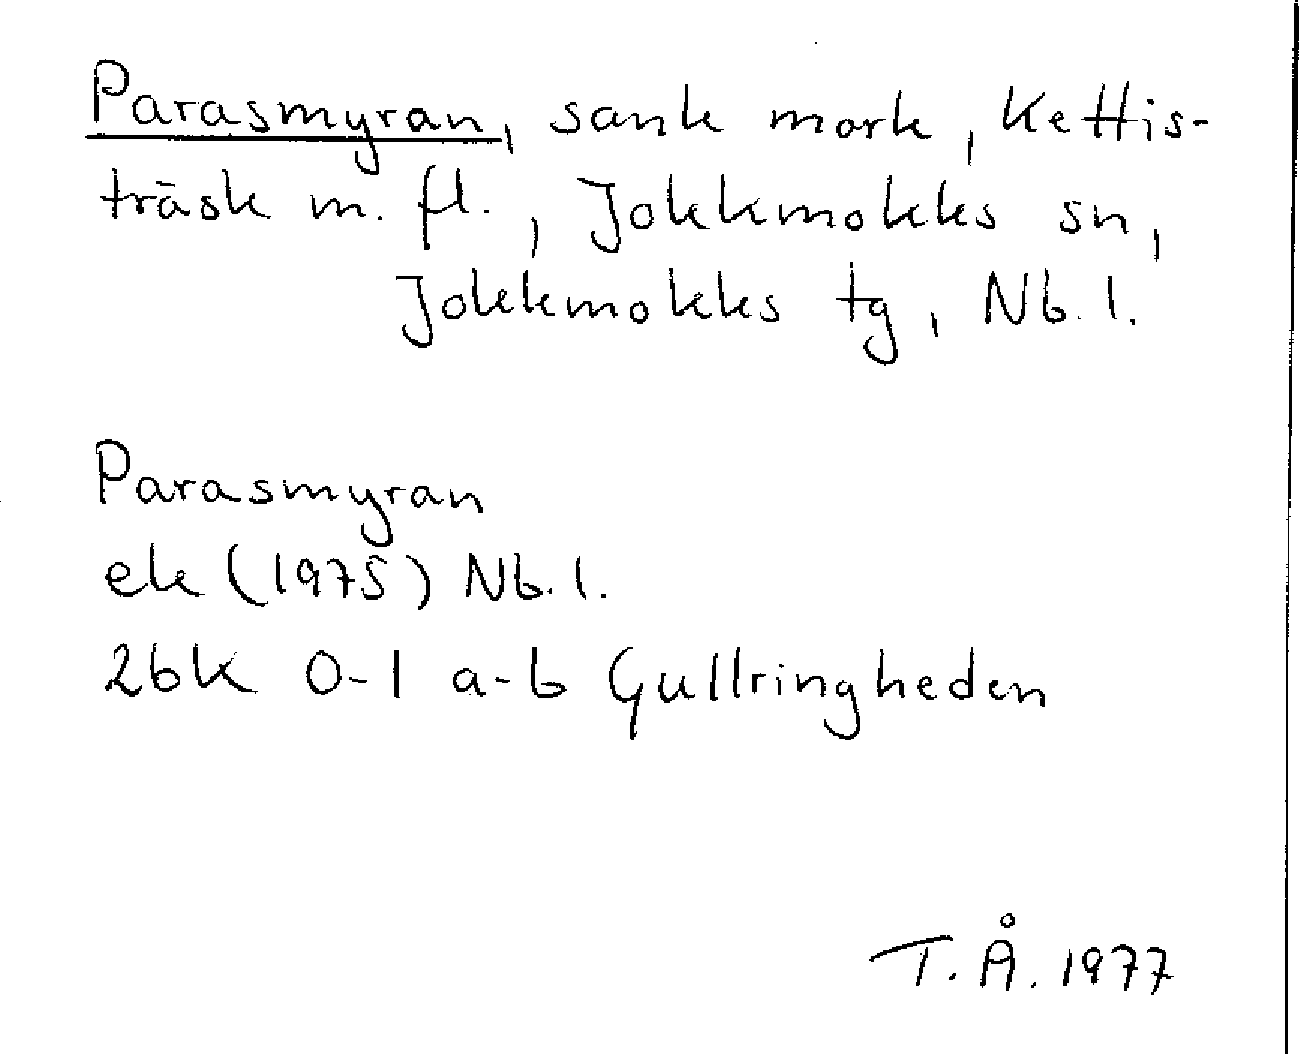 Parasmyran, sank mark, Kettis-
träsk m. fl., Jokkmokks sn,
Jokkmokks tg, Nb. l.
Parasmyran
ek (1975) Nb. l.
26K 0-1 a-b Gullringheden
T. Å. 1977